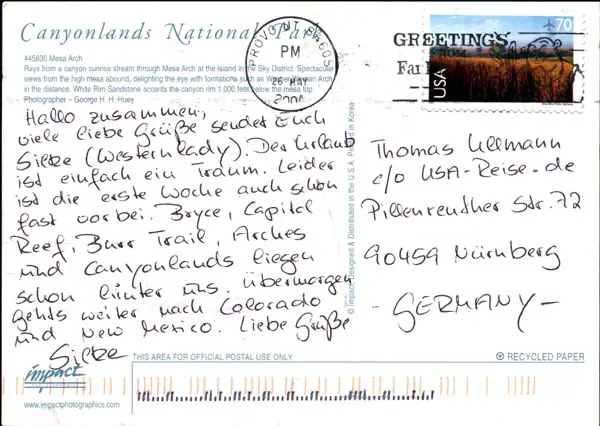 Canyonlands National Park
#45830 Mesa Arch
Rays from a canyon sunrise stream through Mesa Arch at the Island in the Sky District. Spectacular
views from the high mesa abound, delighting the eye with formations such as Washer Woman Arch
in the distance. White Rim Sandstone accents the canyon rim 1,000 feet below the mesa top.
Photographer – George H. H. Huey
PROVO UT
PM
26 MAY
GREETINGS
FROM
70
USA
Hallo zusammen,
viele liebe Grüße sendet Euch
Silke (Westernlady). Der Urlaub
ist einfach ein Traum. Leider
ist die erste Woche auch schon
fast vorbei. Bryce, Capitol
Reef, Burr Trail, Arches
und Canyonlands liegen
schon hinter uns. übermorgen
gehts weiter nach Colorado
und New Mexico. Liebe Grüße
Silke
© impact Designed & Distributed in the U.S.A. Printed in Korea
Thomas Ullmann
c/o USA-Reise.de
Pillenreuther Str. 72
90459 Nürnberg
- GERMANY -
impact
www.impactphotographics.com
THIS AREA FOR OFFICIAL POSTAL USE ONLY
RECYCLED PAPER